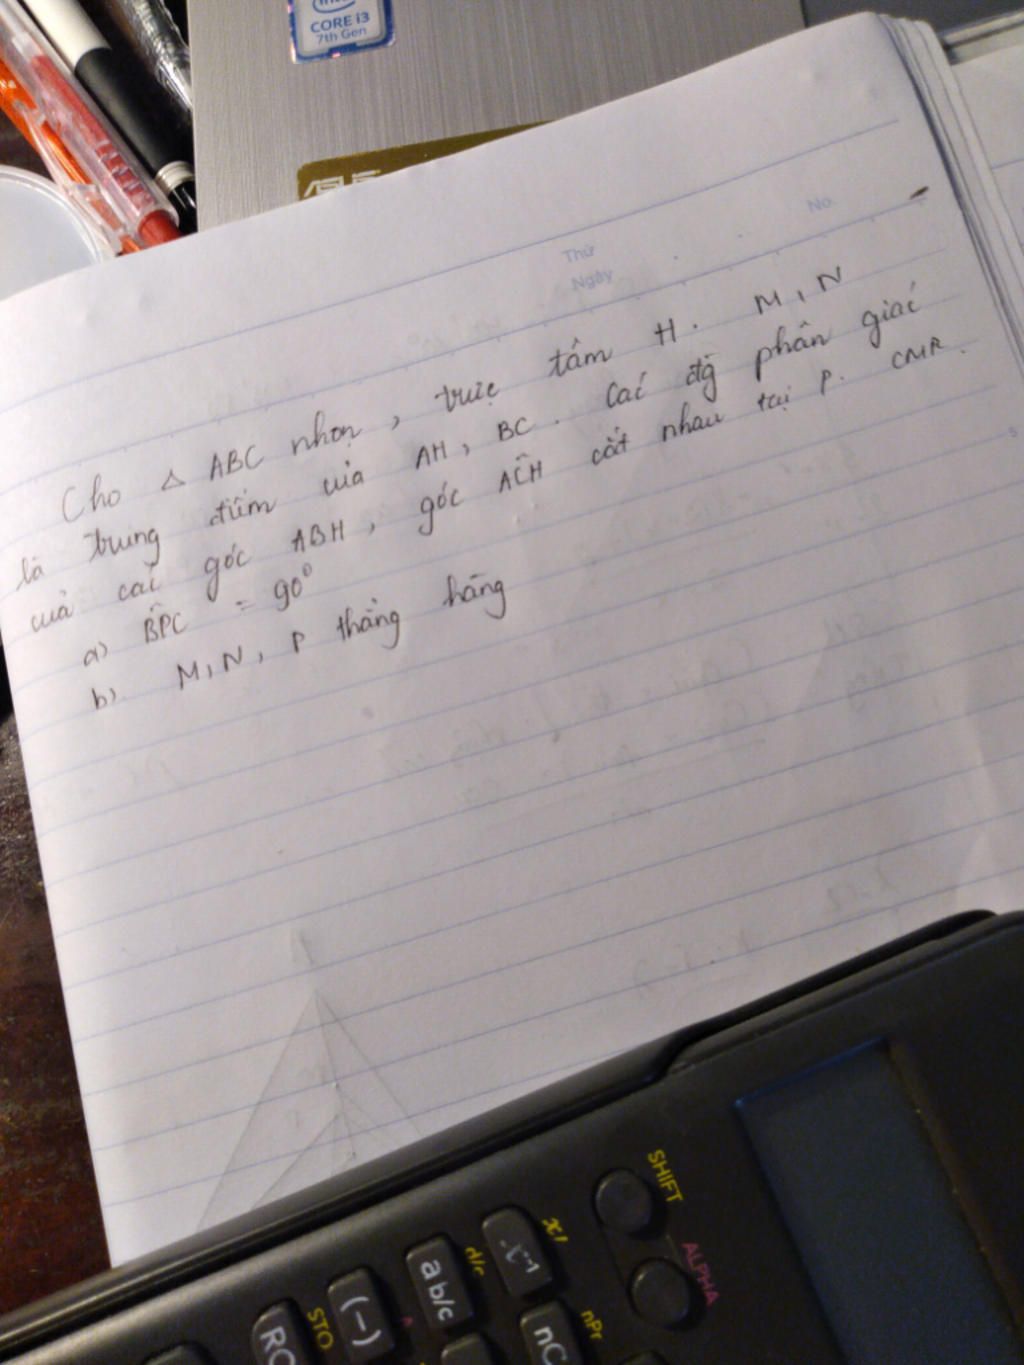 intel
CORE i3
7th Gen
Thứ
Ngày
No.
Cho △ ABC nhọn, trực tâm H. M, N
là trung điểm của AH, BC. Các đg phân giác
của các góc ABH, góc AĈH cắt nhau tại P. CMR.
a) BP̂C = 90⁰
b). M, N, P thẳng hàng
SHIFT
ALPHA
x!
x⁻¹
d/c
ab/c
nPr
nC
(−)
A
STO
RC